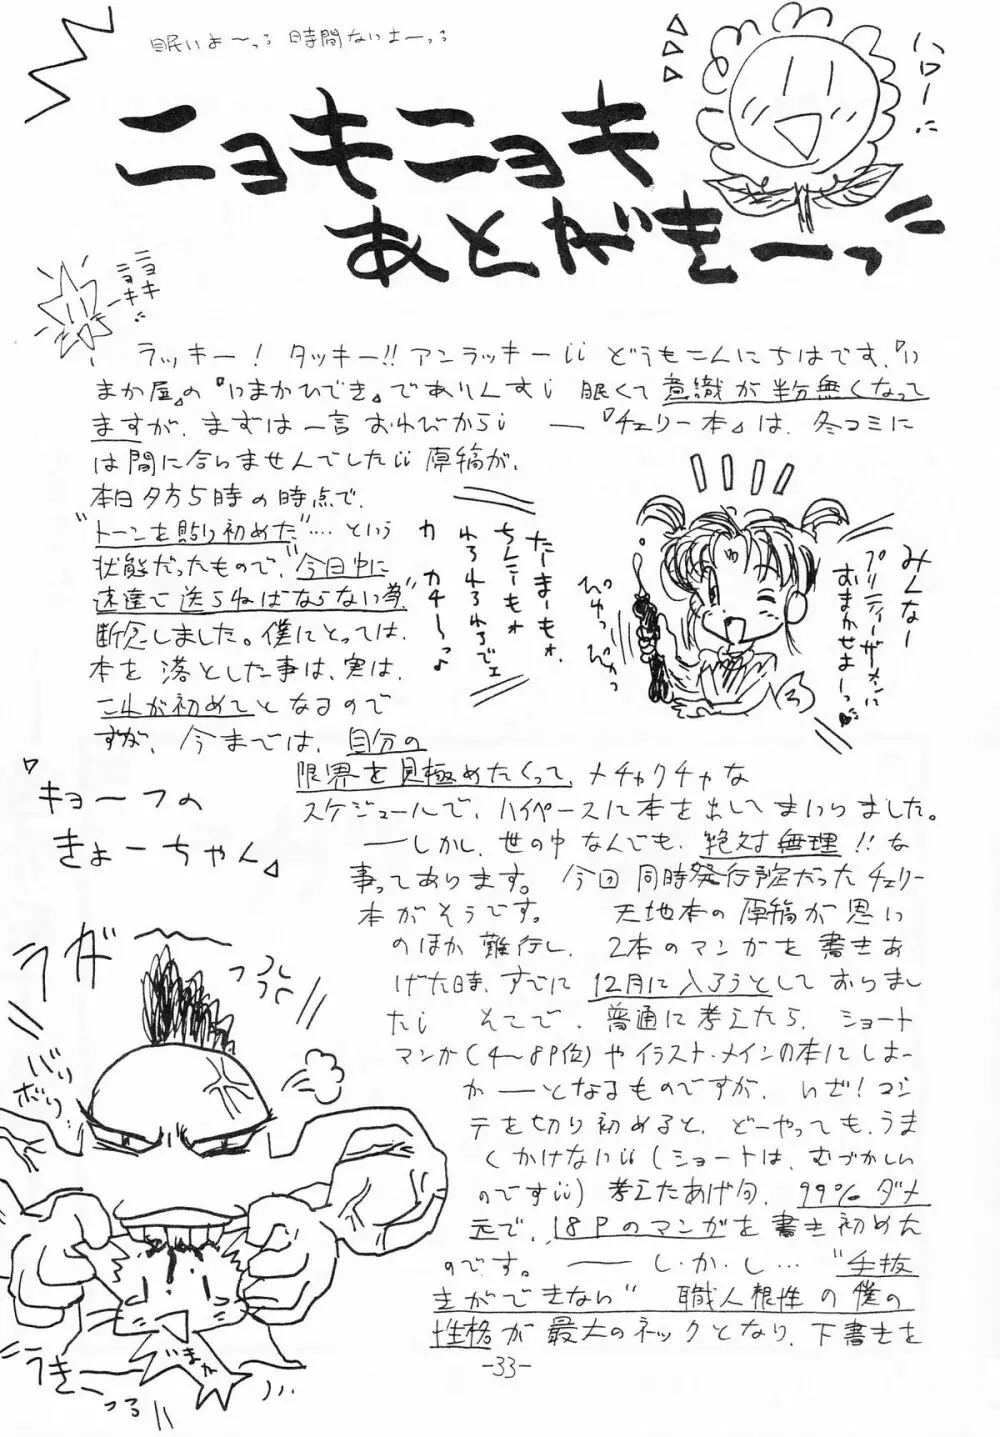 眠いよ〜っ 時間ないよーっ
ハロー
ニョキニョキ
あとがきーっ
ニョキ
ニョキ
ラッキー! タッキー!! アンラッキーii どうもこんにちはです、『い
まか屋』の『いまかひでき』でありんすi 眠くて意識が半分無くなって
ますが、まずは一言おわびからi ―『チェリー本』は、冬コミに
は間に合いませんでしたii 原稿が、
本日夕方5時の時点で、
"トーンを貼り初めた"…という
状態だったもので、"今日中に
速達で送らねばならない為"
断念しました。僕にとっては、
本を落とした事は、実は、
これが初めてとなるので
すが、今までは、自分の
限界を見極めたくって、メチャクチャな
スケジュールで、ハイペースに本を出してまいりました。
―しかし、世の中なんでも、絶対無理!!な
事ってあります。今回同時発行予定だったチェリー
本がそうです。 天地本の原稿が思い
のほか難行し、2本のマンガを書きあ
げた時、すでに12月に入ろうとしておりまし
たi そこで、普通に考えたら、ショート
マンガ(4〜8P位)やイラスト・メインの本にしよー
か―となるものですが、いざ!コン
テを切り初めると、どーやっても、うま
くかけないii(ショートは、むづかしい
のですii)考えたあげ句、99%ダメ
元で、18Pのマンガを書き初めた
のです。―し・か・し…"手抜
きができない"職人根性の僕の
性格が最大のネックとなり、下書きを
みんなー
プリティーザーメンに
おまかせよーっ
びゅっ
びゅっ
たーまーもォ、
ちんこーもォ
われわれわれでェ
カ カチ〜っ♪
『キョーフの
きょーちゃん』
うガーーっ
バリ
ボリ
いまか
うきーっ
-33-